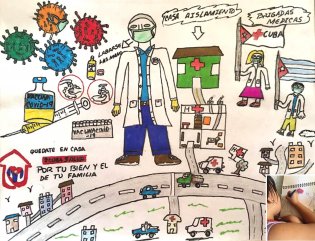 CASA AISLAMIENTO
BRIGADAS
MEDICAS
CUBA
LABARSE
LAS MANOS
VACUNA
COVID-19
VACUNACION
QUEDATE EN CASA
POR TU BIEN Y EL
DE TU FAMILIA